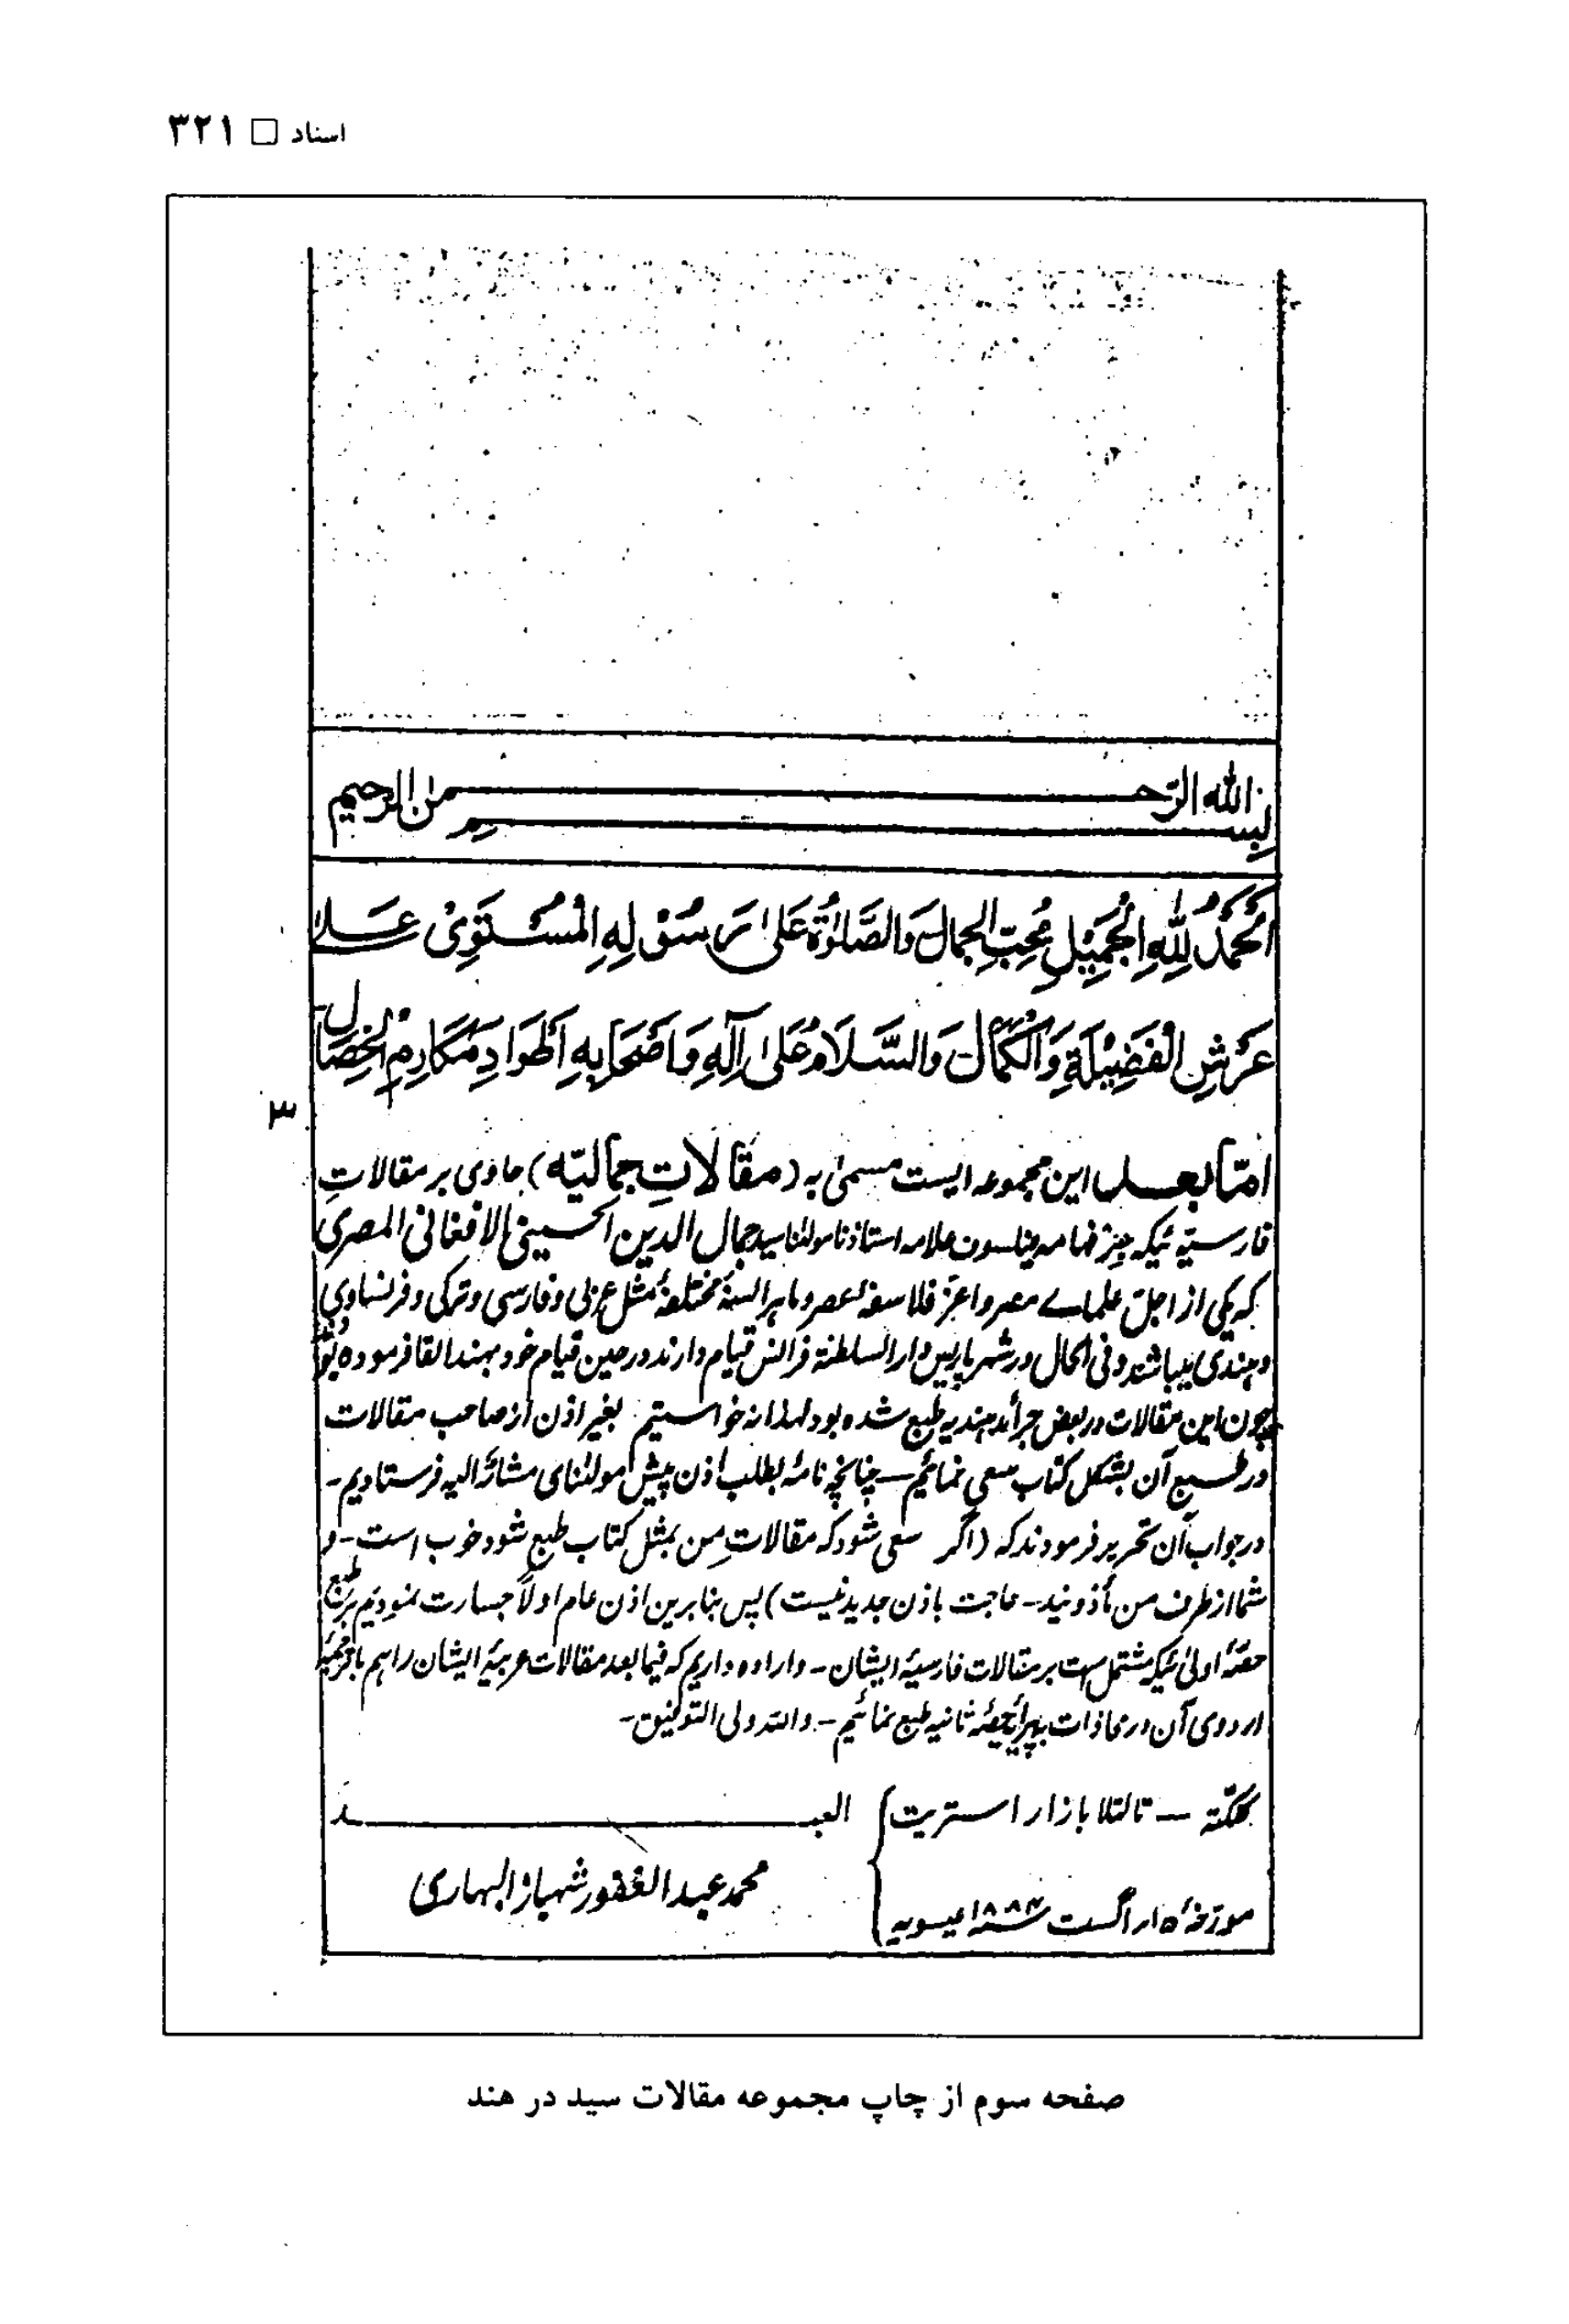 اسناد □ ۳۲۱
بسم الله الرّحمن الرحیم
اَلْحَمْدُ لِلّٰهِ الْجَمِیْلِ مُحِبِّ الْجمالِ وَالصَّلٰوةُ عَلیٰ رَسُوْلِهِ الْمُسْتَوِیْ عَلیٰ
عَرْشِ الْفَضِیْلَةِ وَالْکَمَالِ وَالسَّلَامُ عَلیٰ آلِهِ وَاَصْحَابِهِ اَطْوَادِ مَکَارِمِ الْخِصَالِ
۳
امّا بعد این مجموعه ایست مسمیٰ به (مقالاتِ جمالیّه) حاوی بر مقالاتِ
فارسیّه ئیکه فهامه فیلسوف علامه استاذنا مولٰنا سید جمال الدین الحسینی الافغانی المصری
که یکی از اجلّ علماے مصر و اعزّ فلاسفهٔ عصر و ماهر السنهٔ مختلفهٔ مثل عربی و فارسی و ترکی و فرنساوی
و هندی میباشند و فی الحال در شهر پاریس دار السلطنة فرانس قیام دارند در حین قیام خود بهند القا فرموده بودند
چون این مقالات در بعض جرائد هندیه طبع شده بود لهذا نه خواستیم بغیر اذن از صاحب مقالات
در طبع آن بشکل کتاب سعی نمائیم — چنانچه نامهٔ بطلب اذن پیش مولٰنای مشارٌ الیه فرستادیم -
در جواب آن تحریر فرمودند که (اگر سعی شود که مقالاتِ من بمثل کتاب طبع شود خوب است - و
شما از طرف من مأذونید - حاجت باذن جدید نیست) پس بنا برین اذن عام اولاً جسارت نمودیم بر طبع
حصّهٔ اولیٰ ئیکه مشتمل ست بر مقالات فارسیهٔ ایشان - و اراده داریم که فیما بعد مقالات عربیهٔ ایشان را هم با ترجمهٔ
اردوی آن در محاذات بپیرایهٔ حصهٔ ثانیه طبع نمائیم - والله ولی التوفیق -
کلکتّه — تالتلا بازار استریت } العبد
مورّخهٔ ۱۵ اگست سنه ۱۸۸۴ عیسویه
محمد عبد الغفور شهباز البهاری
صفحه سوم از چاپ مجموعه مقالات سید در هند